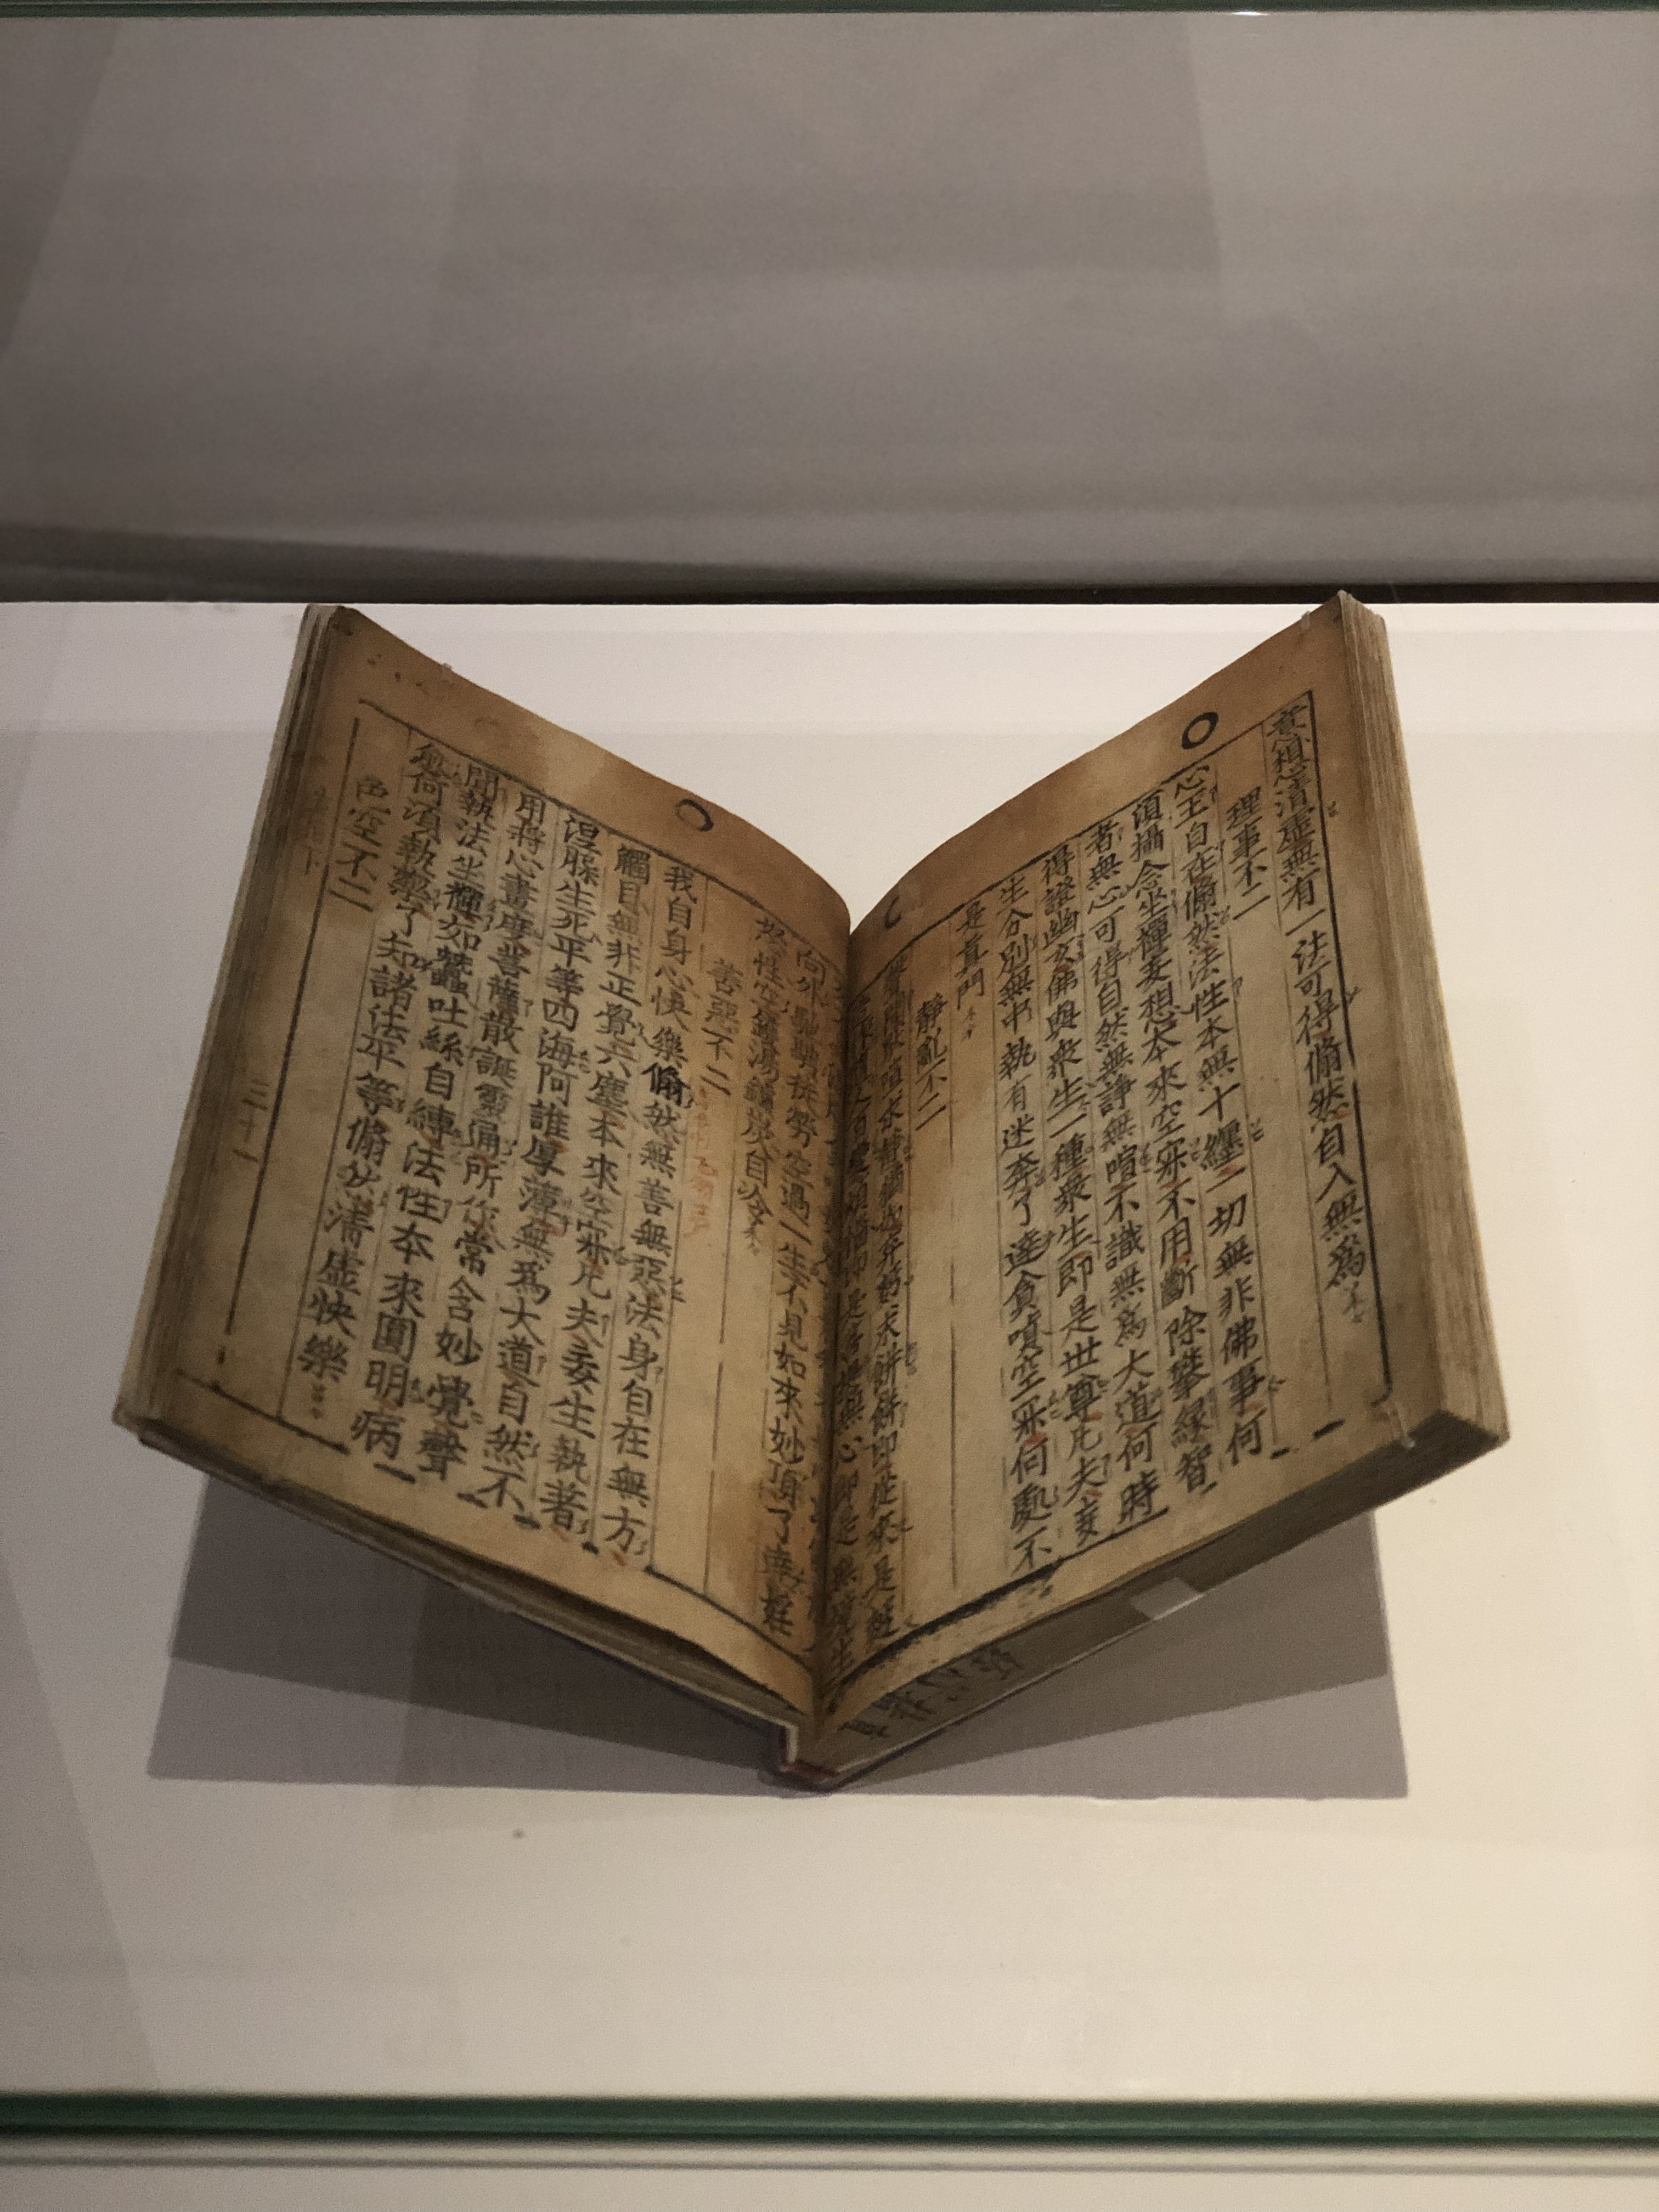 意想清虛無有一法可得翛然自入無爲
理事不二
心王自在翛然法性本無十纏一切無非佛事何
須攝念坐禪妄想本來空寂不用斷除攀緣智
者無心可得自然無諍無喧不識無爲大道何時
得證幽玄佛與衆生一種衆生即是世尊凡夫妄
生分別無中執有迷奔了達貪嗔空寂何處不
是眞門
靜亂不二
求靜猶如弃麪求餅餅即從來是麪
百變煩惱即是菩提無心即是無境生
向外馳騁徒勞空過一生不見如來妙頂了達婬
慾性空鑊湯爐炭自冷
善惡不二
我自身心快樂翛然無善無惡法身自在無方
觸目無非正覺六塵本來空寂凡夫妄生執著
涅槃生死平等四海阿誰厚薄無爲大道自然不
用將心畫度菩薩散誕靈通所作常含妙覺聲
聞執法坐禪如蠶吐絲自縛法性本來圓明病
愈何須執藥了知諸法平等翛然清虛快樂
色空不二
下
三十一